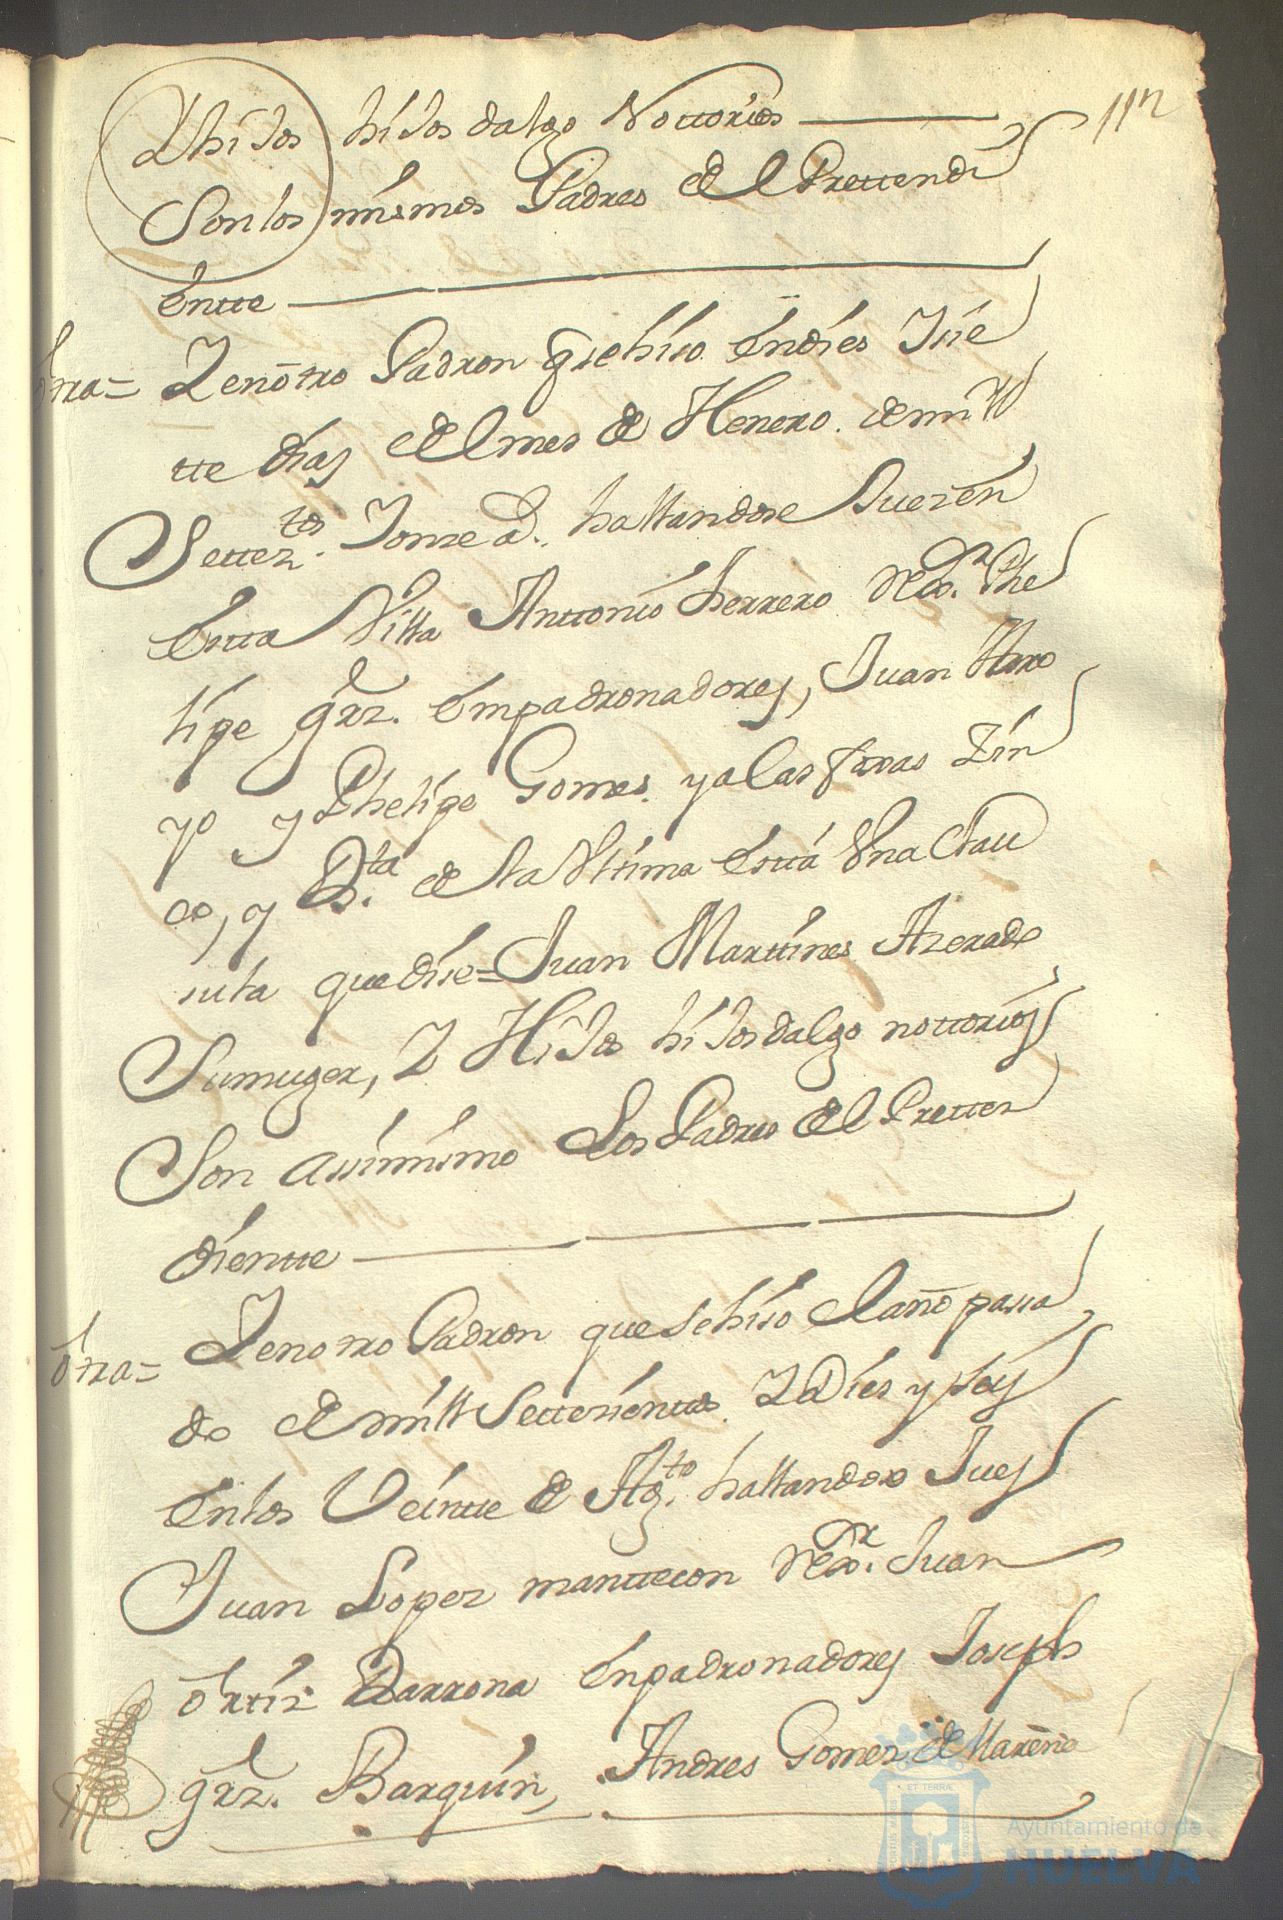 112
Y hijos hijos dalgo Nottorios
Son los mismos Padres de el Prettendi
entte
otra = Y en otro Padron q̃ se hiso en dies y sie
tte dias de el mes de Henero de mill
Settez.tos y onze a.s hallandose Juez en
estta Villa Anttonio herrero Rexd.r Phe
lipe grz. empadronadores, Juan Arro
yo y Phelipe Gomes y a las foxas zin
co, y B.ta de la Vltima está Vna Clau
sula que dise = Juan Marttines Azerado
Su muger, Y Hijos hijos dalgo nottorios
Son assimismo Los Padres de el Pretten
diente
otra = Y en otro Padron que se hiso el año passa
do de mill Settesientos Y Dies y seis
en los Veintte de Ag.to hallandose Jues
Juan Lopez manttecon Rexd.r Juan
Ortiz Barrona enpadronadores Joseph
grz. Barquin, Andres Gomez de Mareño
Ayuntamiento de
HUELVA